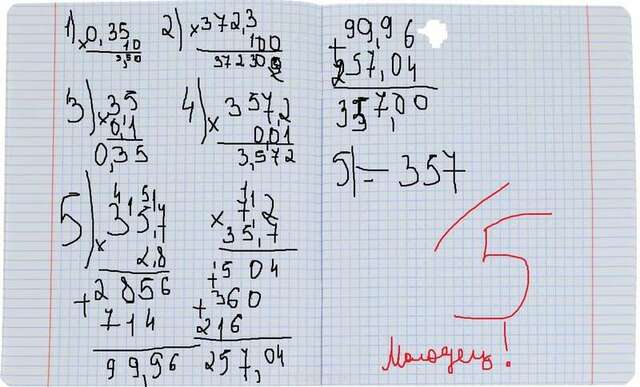 1) × 0,35
10
3,50
2) × 372,3
100
37230
3) × 35
0,1
0,35
4) × 357,2
0,01
3,572
5) × 35,7
2,8
+ 2856
714
99,96
× 7,2
35,7
+ 504
+ 360
216
257,04
+ 99,96
257,04
357,00
5) = 357
5
Молодец!